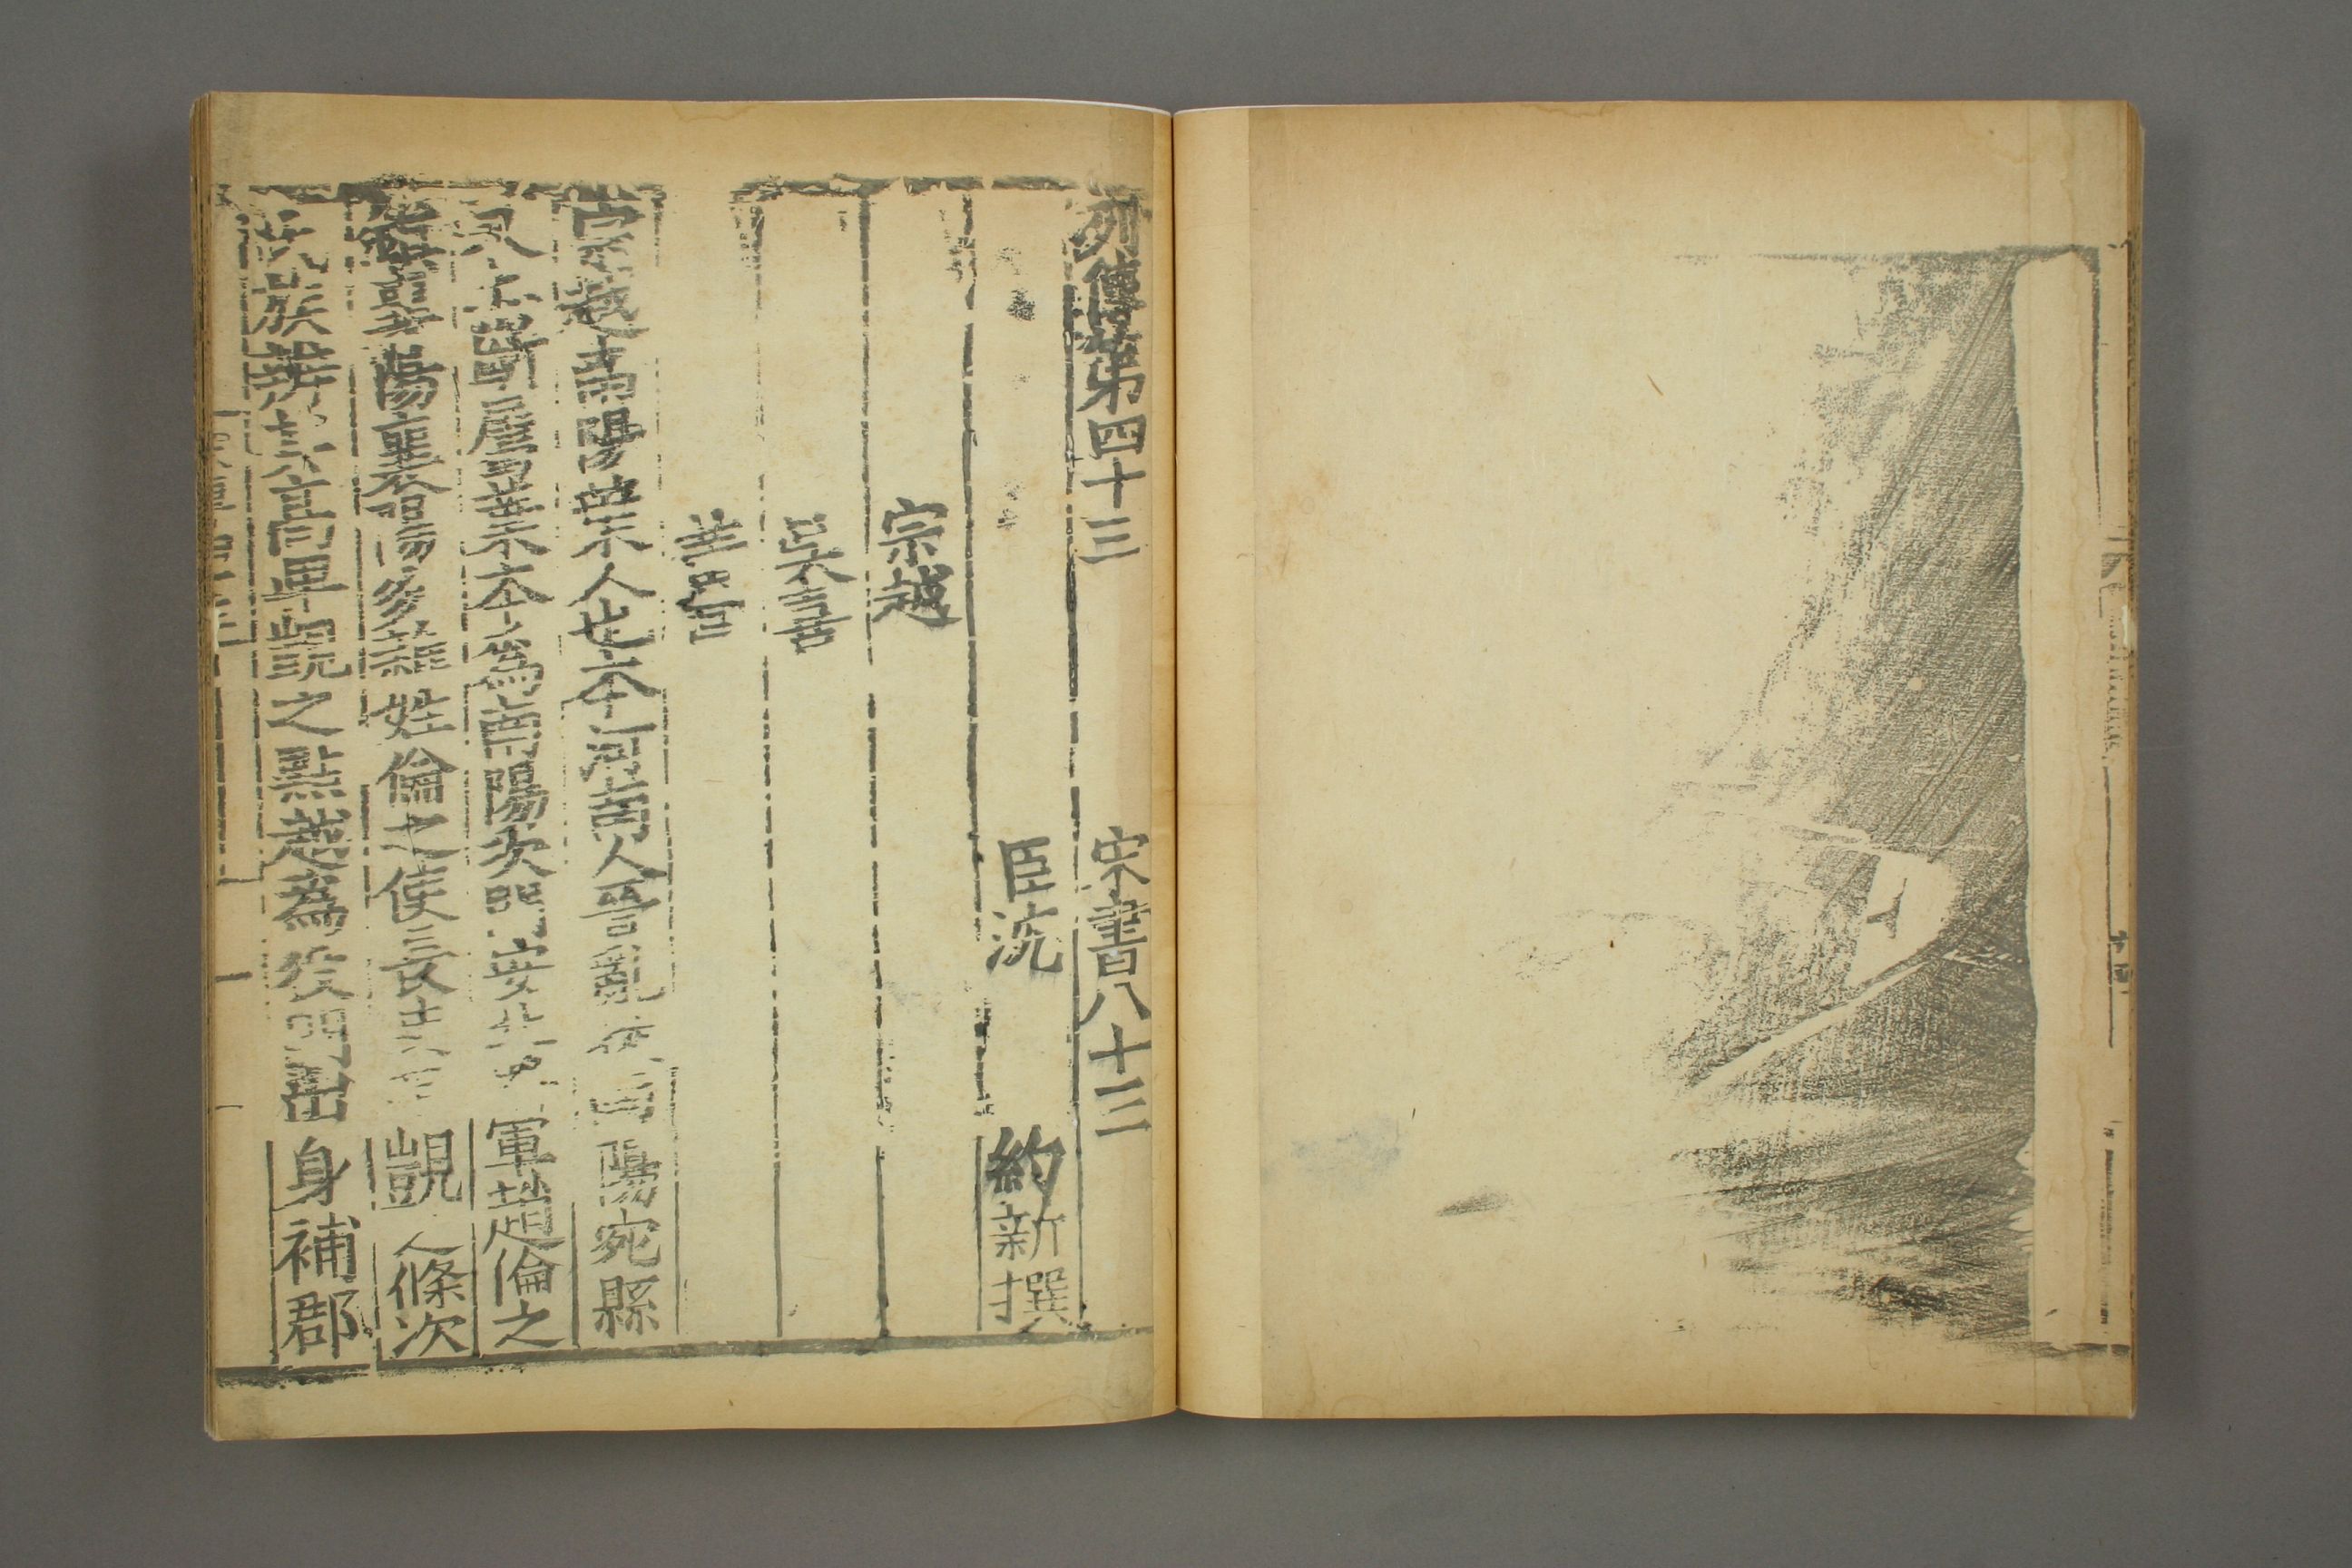 列傳第四十三 宋書八十三
臣沈 約新撰
宗越
吳喜
黃回
宗越南陽葉人也本河南人晉亂徙南陽宛縣
又土斷屬葉本爲南陽次門安北將軍趙倫之
鎮襄陽襄陽多雜姓倫之使長史范覬之條次
氏族辨其高卑覬之點越爲役門出身補郡